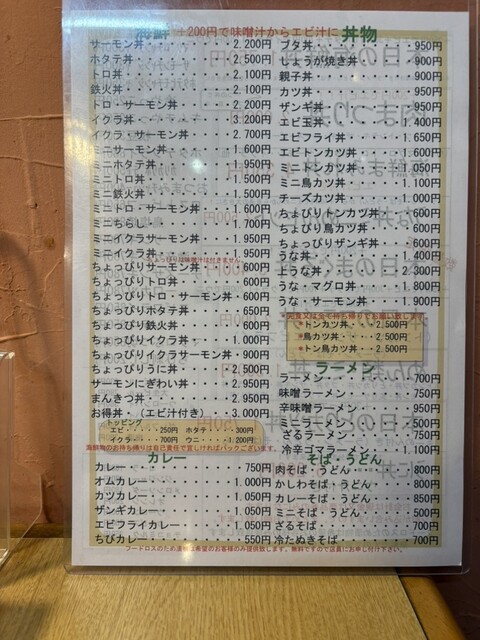 海鮮 +200円で味噌汁からエビ汁に
サーモン丼・・・・・・・・2.200円
ホタテ丼・・・・・・・・・2.500円
トロ丼・・・・・・・・・・2.100円
鉄火丼・・・・・・・・・・2.100円
トロ・サーモン丼・・・・・2.200円
イクラ丼・・・・・・・・・3.200円
イクラ・サーモン丼・・・・2.700円
ミニサーモン丼・・・・・・1.600円
ミニホタテ丼・・・・・・・1.950円
ミニトロ丼・・・・・・・・1.500円
ミニ鉄火丼・・・・・・・・1.500円
ミニトロ・サーモン丼・・・1.600円
ミニちらし・・・・・・・・1.700円
ミニイクラサーモン丼・・・1.950円
ミニイクラ丼・・・・・・・1.950円
ちょっぴりサーモン丼・・・600円
ちょっぴりトロ丼・・・・・600円
ちょっぴりトロ・サーモン丼・・600円
ちょっぴりホタテ丼・・・・650円
ちょっぴり鉄火丼・・・・・600円
ちょっぴりイクラ丼・・・・1.000円
ちょっぴりイクラサーモン丼・・900円
ちょっぴりうに丼・・・・・2.500円
サーモンにぎわい丼・・・・2.950円
まんきつ丼・・・・・・・・2.950円
お得丼・・(エビ汁付き)・3.000円
トッピング
エビ・・・・250円 ホタテ・・・300円
イクラ・・・700円 ウニ・・・1.200円
海鮮物のお持ち帰りは自己責任で宜しければパックございます。
カレー
カレー・・・・・・・・・・750円
オムカレー・・・・・・・・1.000円
カツカレー・・・・・・・・1.050円
ザンギカレー・・・・・・・1.050円
エビフライカレー・・・・・1.050円
ちびカレー・・・・・・・・550円
丼物
ブタ丼・・・・・・・・・・950円
しょうが焼き丼・・・・・・900円
親子丼・・・・・・・・・・900円
カツ丼・・・・・・・・・・950円
ザンギ丼・・・・・・・・・950円
エビ玉丼・・・・・・・・・1.400円
エビフライ丼・・・・・・・1.650円
エビトンカツ丼・・・・・・1.600円
ミニトンカツ丼・・・・・・1.050円
ミニ鳥カツ丼・・・・・・・1.100円
チーズカツ丼・・・・・・・1.000円
ちょぴりトンカツ丼・・・・600円
ちょぴり鳥カツ丼・・・・・600円
ちょっぴりザンギ丼・・・・600円
うな丼・・・・・・・・・・400円
上うな丼・・・・・・・・・2.300円
う・な・マグロ丼・・・・・1.800円
うな・サーモン丼・・・・・1.900円
*トンカツ丼・・・・2.500円
*鳥カツ丼・・・・・2.500円
*トン鳥カツ丼・・・2.500円
ラーメン
ラーメン・・・・・・・・・700円
味噌ラーメン・・・・・・・750円
辛味噌ラーメン・・・・・・950円
ミニラーメン・・・・・・・500円
ざるラーメン・・・・・・・750円
冷辛ゴマラーメン・・・・・1.100円
そば・うどん
肉そば・うどん・・・・・・800円
かしわそば・うどん・・・・800円
カレーそば・うどん・・・・850円
ミニそば・うどん・・・・・500円
ざるそば・・・・・・・・・700円
冷たぬきそば・・・・・・・700円
フードロスのため漬物は希望のお客様のみ提供致します。無料ですので店員にお申し付け下さい。